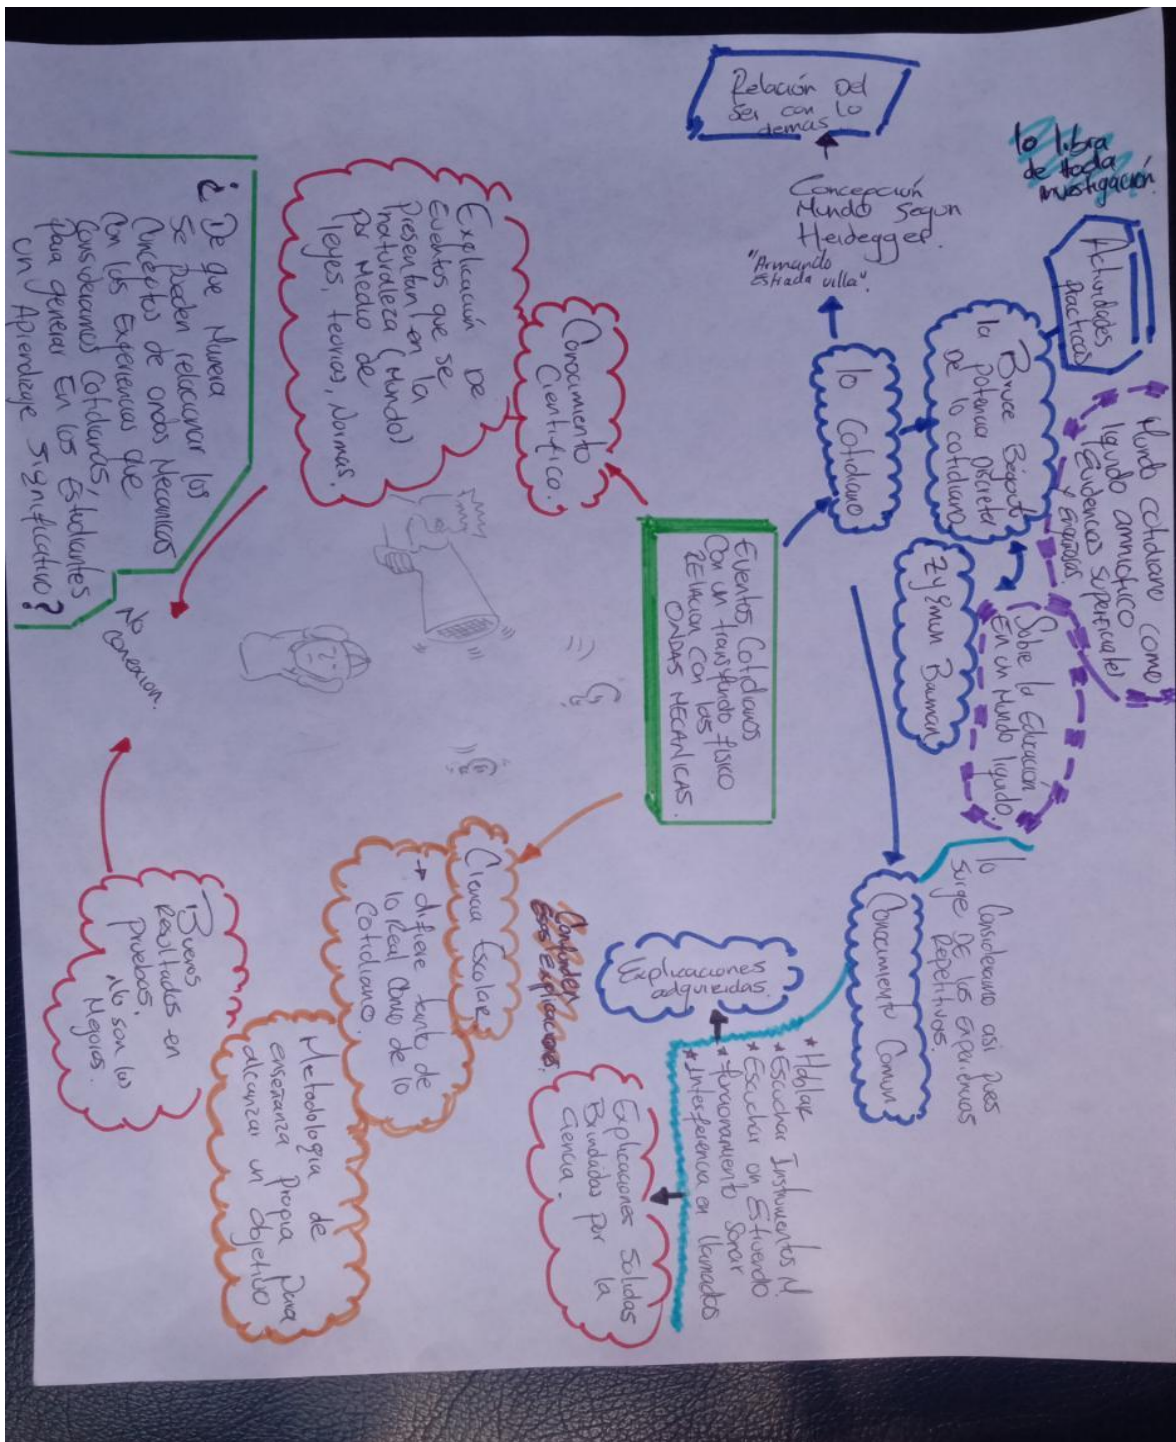 Relación Del
Ser con Lo
demas
Concepción
Mundo Segun
Heidegger.
"Armando
Estrada villa".
lo libra
de toda
investigación.
Actividades
Practicas
Bruce Bégout
la potencia discreta
de lo cotidiano
lo Cotidiano
Mundo cotidiano como
liquido amniotico
Evidencias superficiales
y Engañosas
Sobre la Educación
En un Mundo liquido.
Zygmun Bauman
Eventos, Cotidianos
Con un transfondo fisico
RElación con las
ONDAS MECANICAS.
Conocimiento
Cientifico.
Explicación DE
Eventos que se
Presentan en la
naturaleza (Mundo)
Por Medio de
leyes, teorias, Normas.
¿De que Manera
Se pueden relacionar los
Conceptos de ondas Mecanicas
Con las Experiencias que
Consideramos Cotidianas,
para generar En los Estudiantes
un Aprendizaje Significativo?
No
conexion.
lo Consideramo asi pues
surge DE las experiencias
Repetitivas.
Conocimiento Comun
* Hablar
* Escuchar Instrumentos M.
* Escuchar un Estruendo
* funcionamiento Sonar
* Interferencia en llamados
Explicaciones
adquiridas.
Explicaciones Solidas
Brindadas por la
Ciencia.
Confunden
Esas Explicaciones.
Ciencia Escolar
→ difiere tanto de
lo Real Como de lo
Cotidiano.
Metodologia de
enseñanza propia para
alcanzar un objetivo
Buenos
Resultados en
pruebas,
No son los
Mejores.